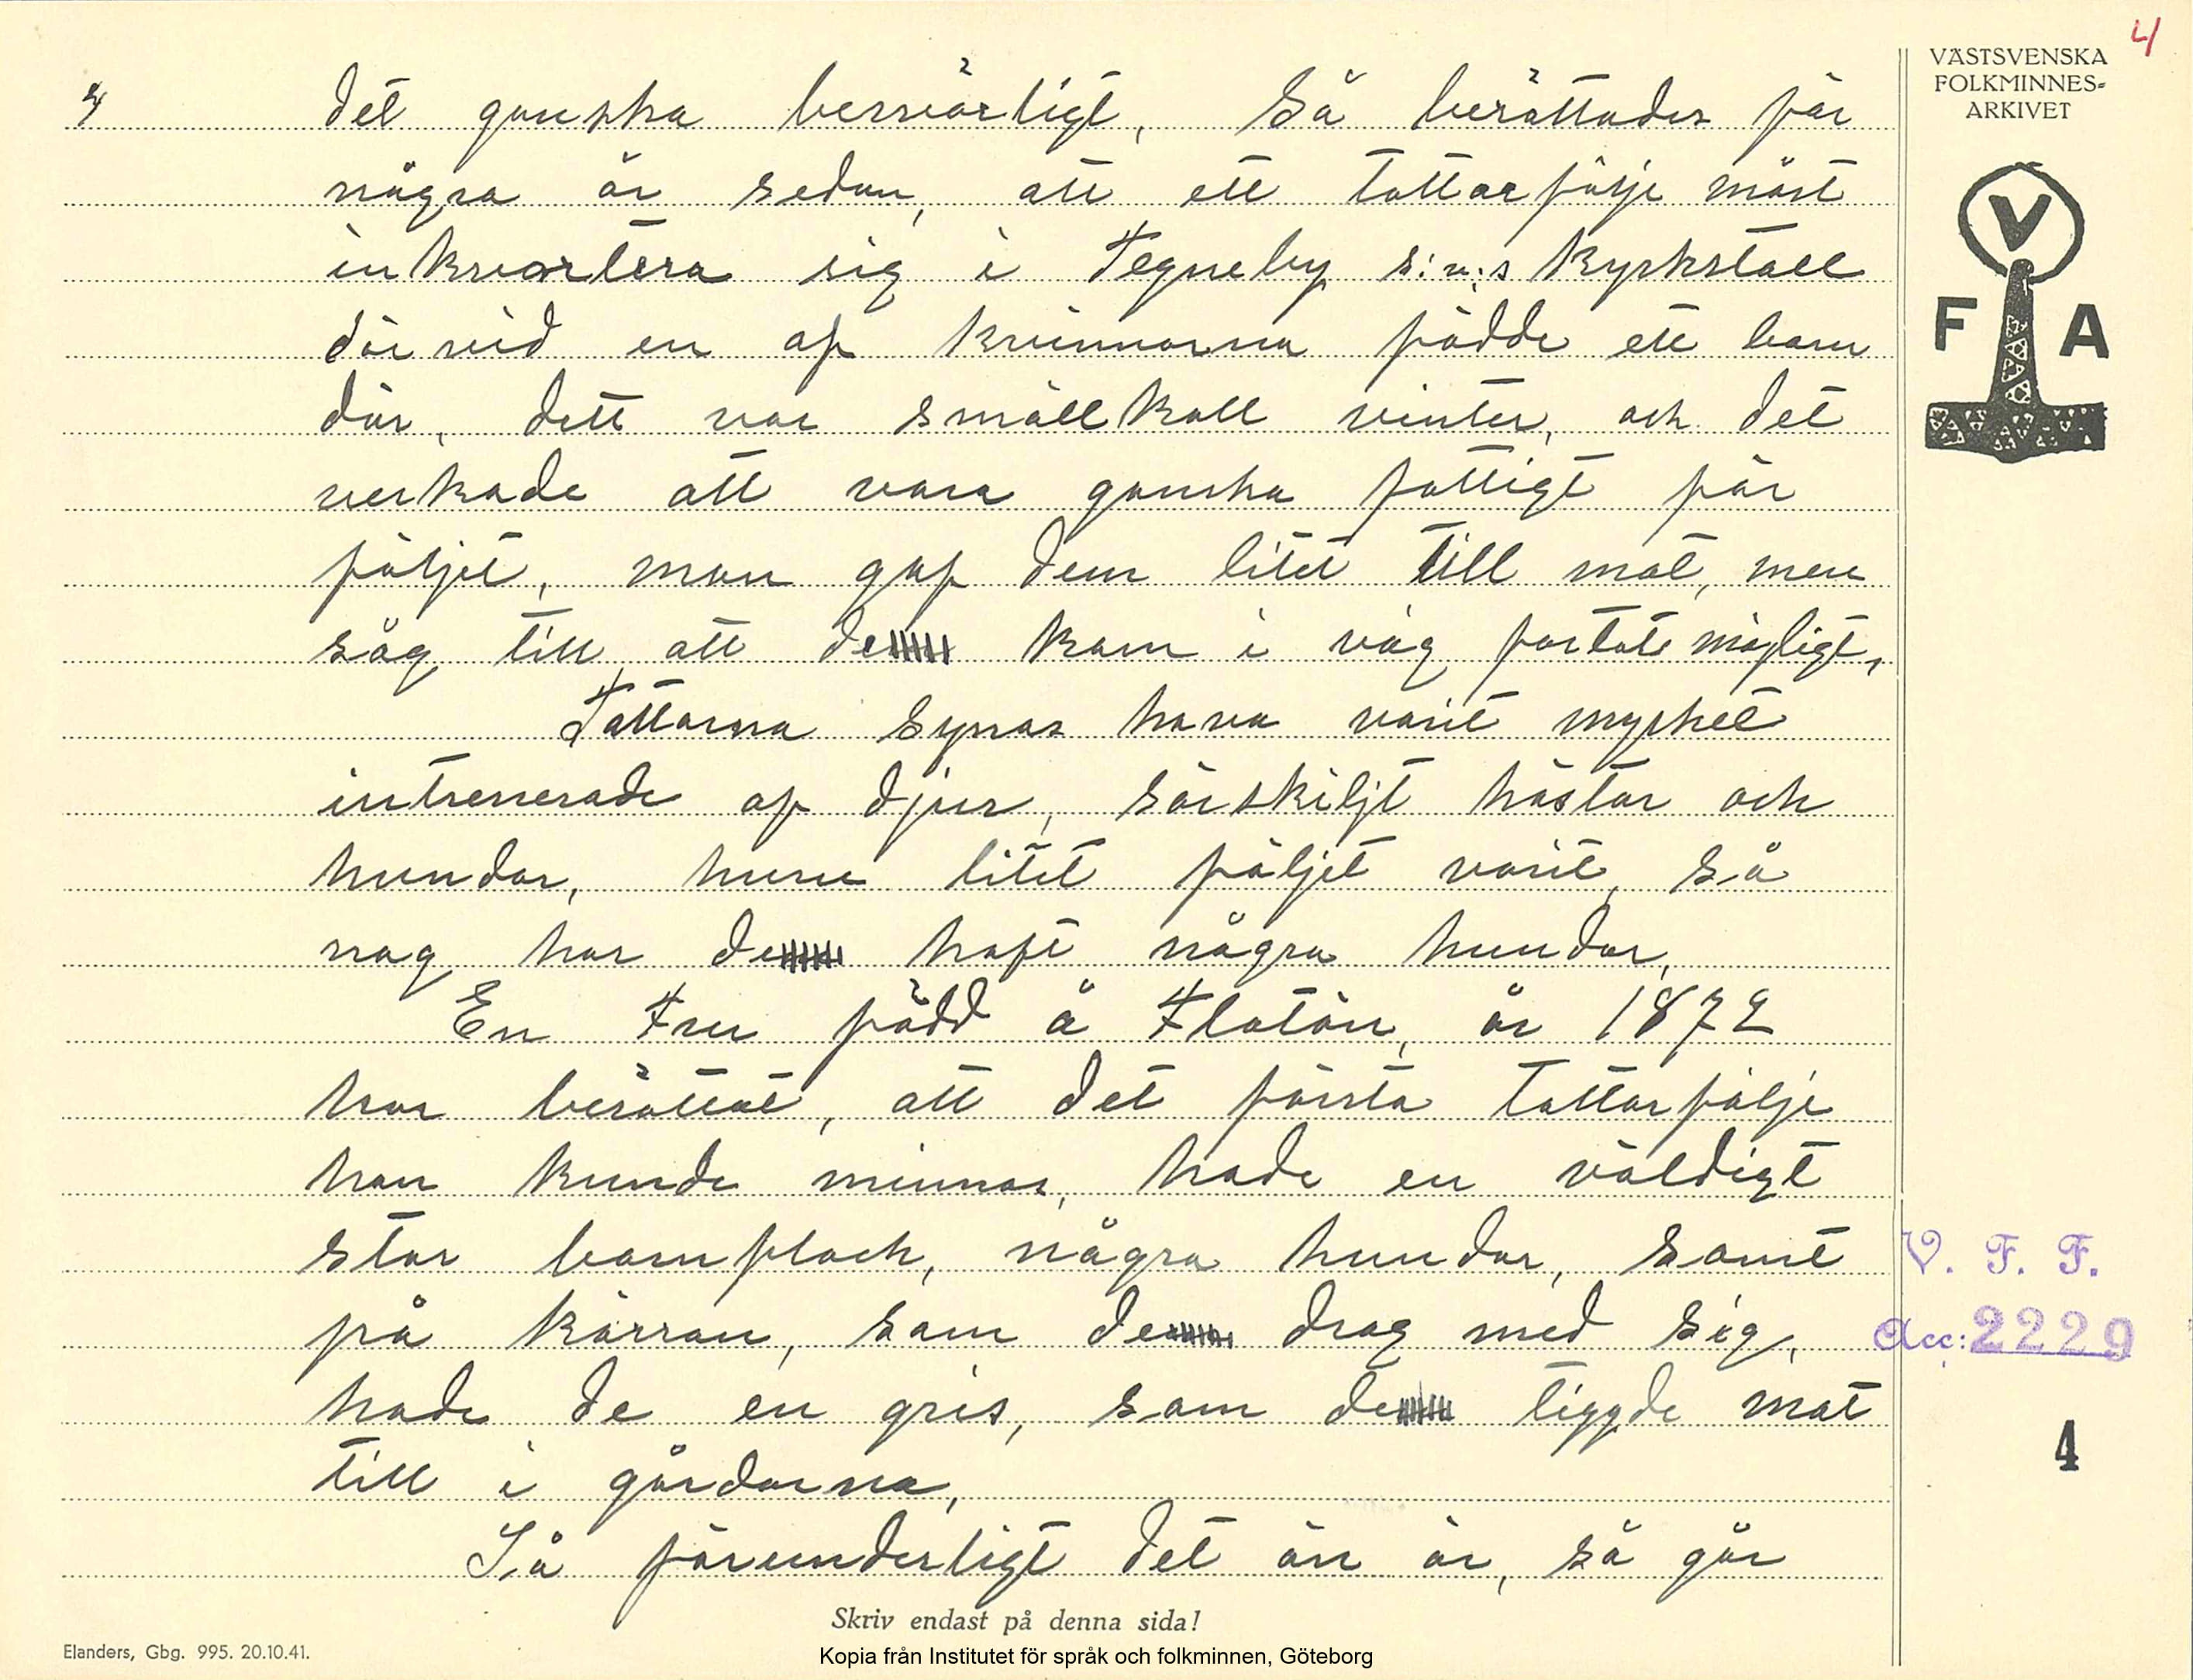 4
VÄSTSVENSKA
FOLKMINNES=
ARKIVET
V
F A
4 det ganska besvärligt, Så berättades för
några år sedan, att ett tattarfölje måst
inkvartera sig i Tegneby s:n:s Kyrkstall
där vid en af kvinnorna födde ett barn
där, dett var smällkall vinter, och det
verkade att vara ganska fattigt för
följet, man gaf dem litet till mat, men
såg till att de kom i väg fortast möjligt,
Tattarna synas hava varit mycket
intresserade af djur, särskiljt hästar och
hundar, huru litet följet varit, så
nog har de haft några hundar,
En Fru född å Flatön, år 1872
har berättat, att det första tattarfölje
hon kunde minnas, hade en väldigt
stor barnflock, några hundar, samt
på kärran, som de drog med sig,
hade de en gris, som de tiggde mat
till i gårdarna,
Så förunderligt det än är, så går
V. F. F.
Acc: 2229
4
Skriv endast på denna sida!
Elanders, Gbg. 995. 20.10.41.
Kopia från Institutet för språk och folkminnen, Göteborg